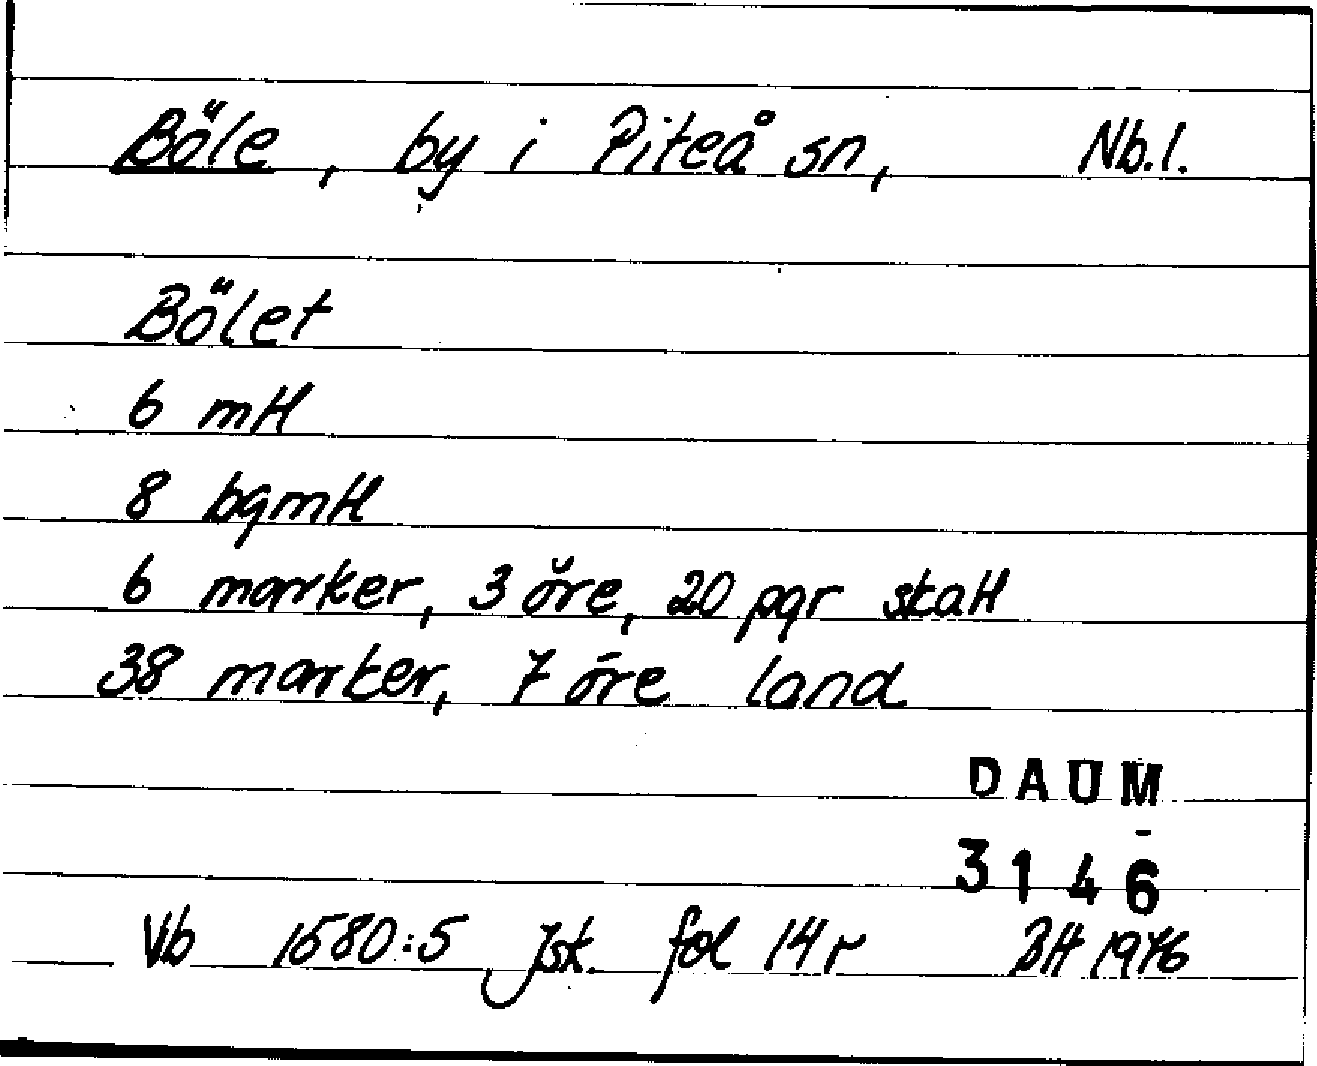 Böle, by i Piteå sn, Nb.l.
Bölet
6 mtl
8 bgmtl
6 marker, 3 öre, 20 pgr skatt
38 marker, 7 öre land
DAUM
3146
Vb 1580:5 Jsk. fol 14 r BH 1976